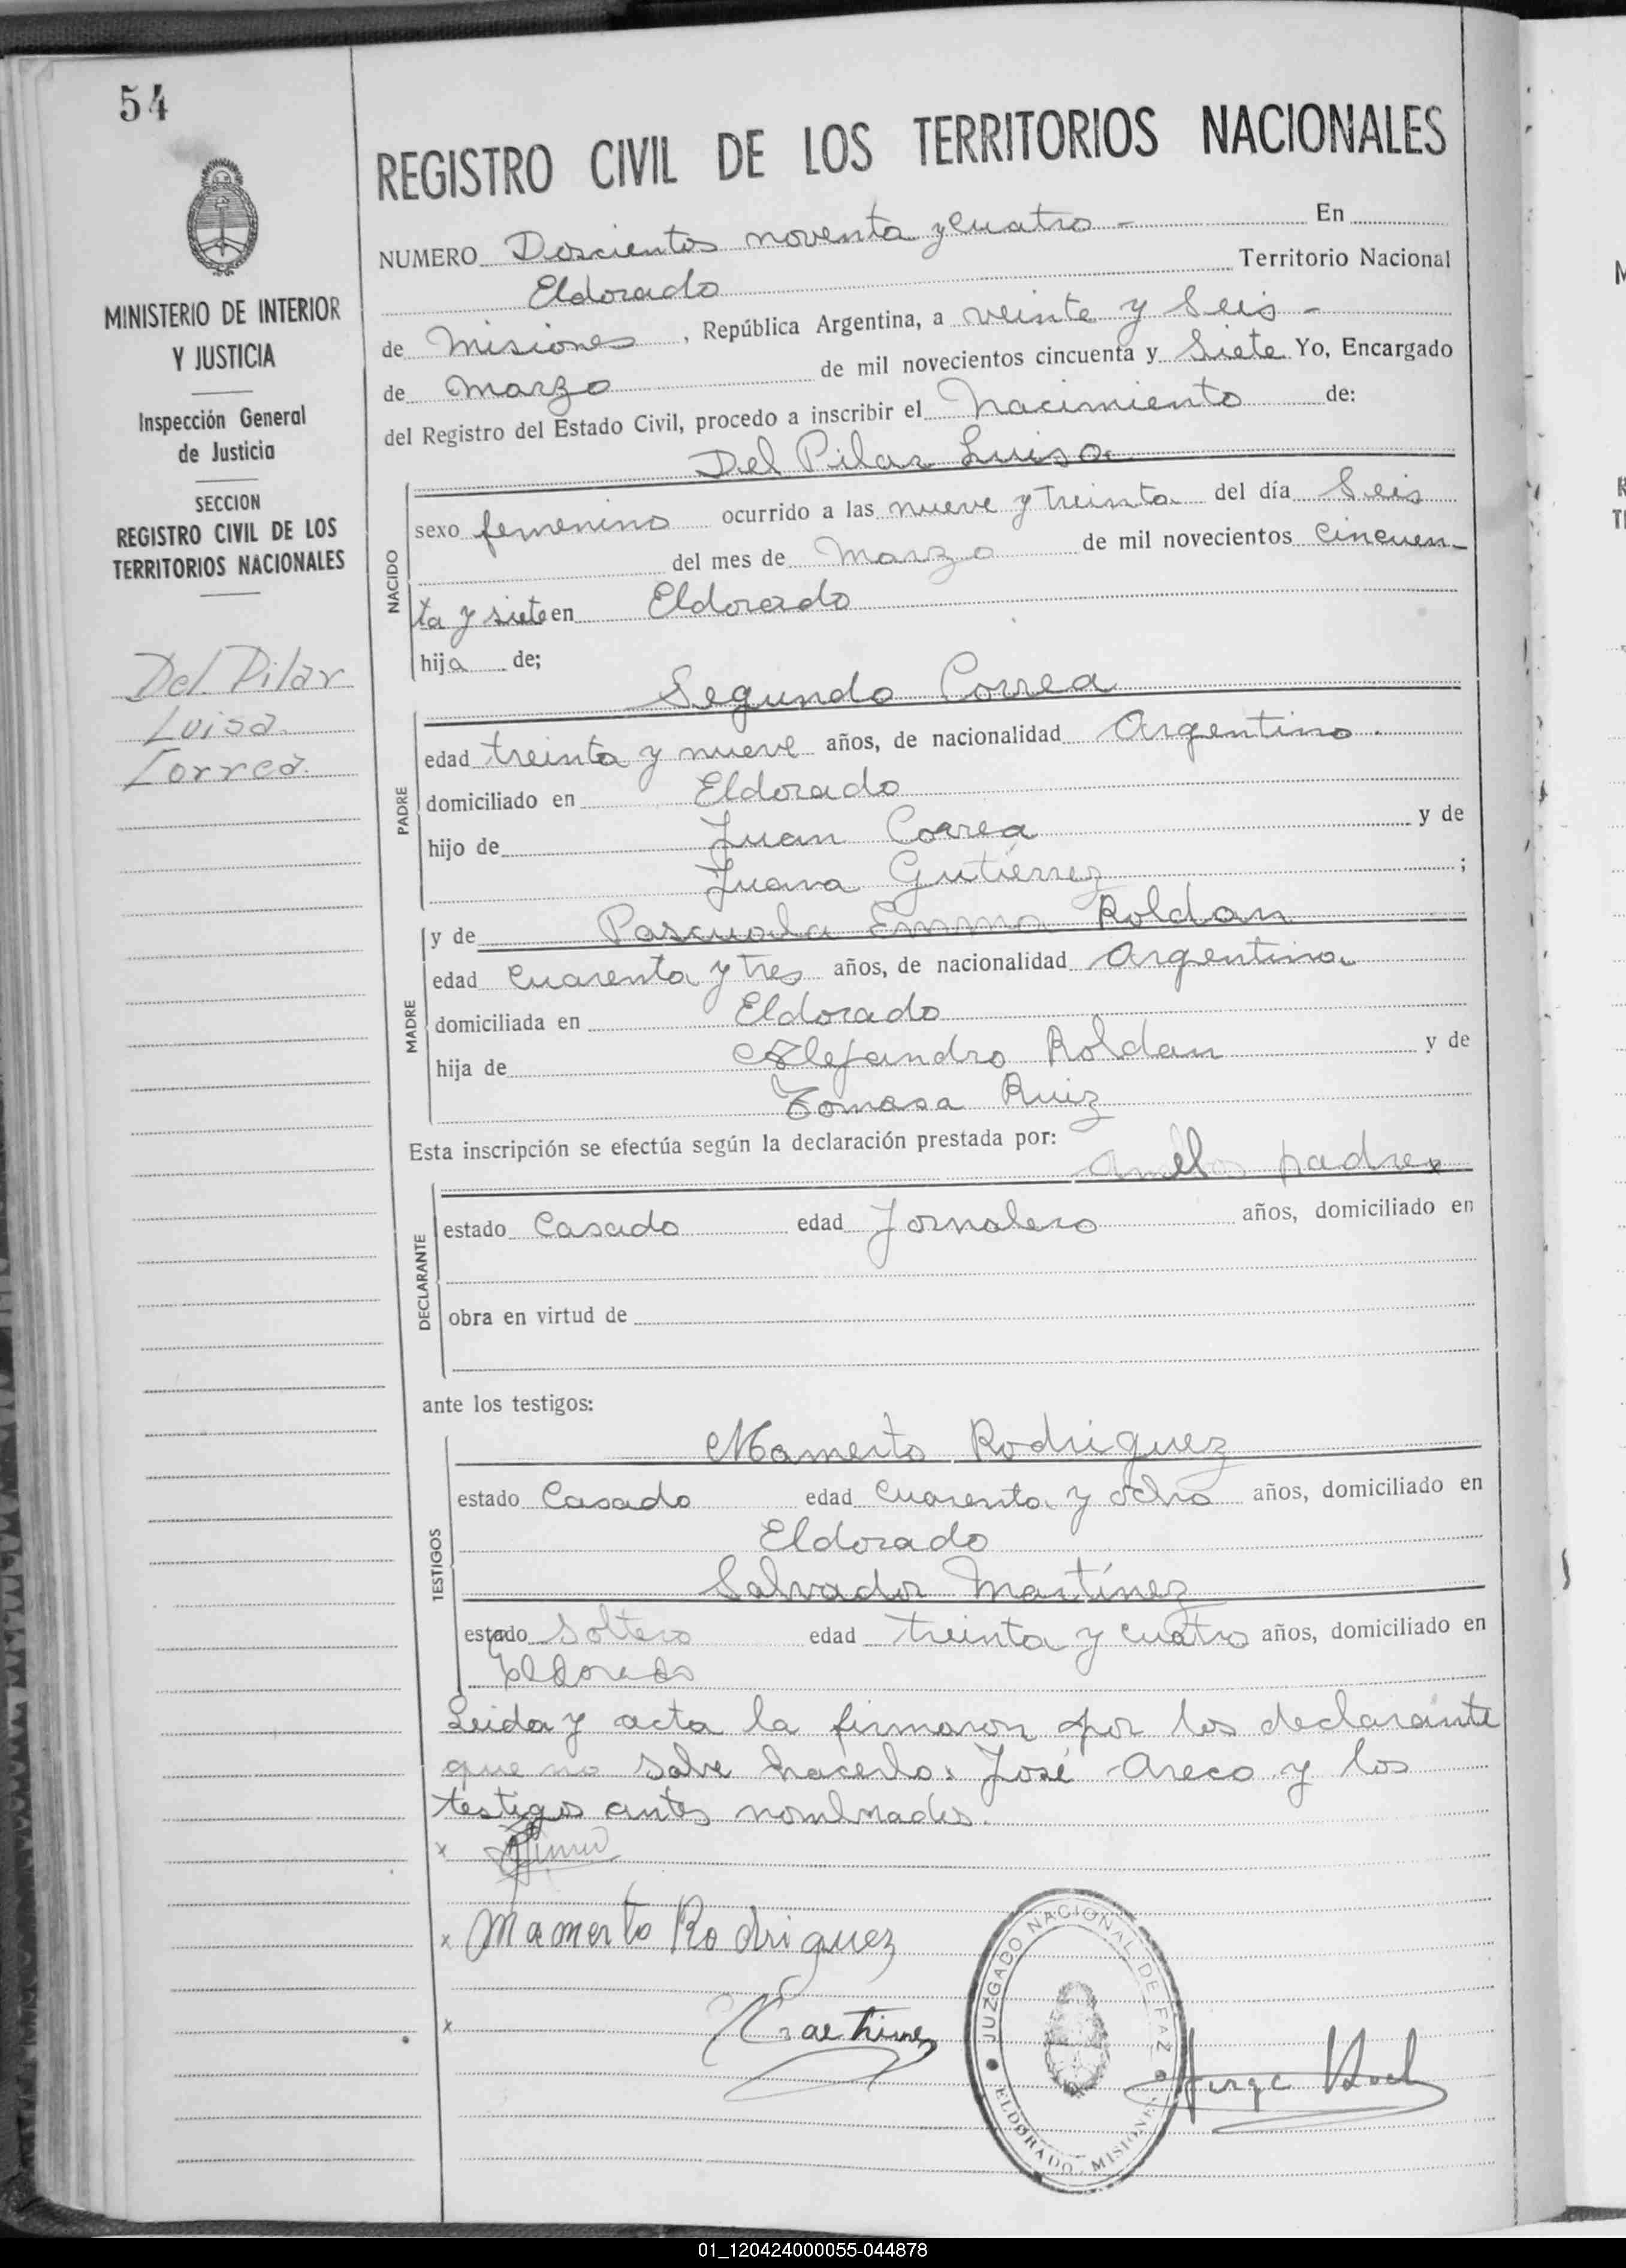 54
MINISTERIO DE INTERIOR
Y JUSTICIA
Inspección General
de Justicia
SECCION
REGISTRO CIVIL DE LOS
TERRITORIOS NACIONALES
Del Pilar
Luisa
Correa.
REGISTRO CIVIL DE LOS TERRITORIOS NACIONALES
NUMERO Doscientos noventa y cuatro - En
Eldorado Territorio Nacional
de Misiones, República Argentina, a veinte y Seis -
de Marzo de mil novecientos cincuenta y Siete Yo, Encargado
del Registro del Estado Civil, procedo a inscribir el Nacimiento de:
Del Pilar Luisa
NACIDO
sexo femenino ocurrido a las nueve y treinta del día Seis
del mes de Marzo de mil novecientos Cincuen-
ta y siete en Eldorado
hija de;
Segundo Correa
PADRE
edad treinta y nueve años, de nacionalidad Argentino.
domiciliado en Eldorado
hijo de Juan Correa y de
Juana Gutiérrez ;
y de Pascuala Emma Roldan
MADRE
edad Cuarenta y tres años, de nacionalidad Argentina
domiciliada en Eldorado
hija de Alejandro Roldan y de
Tomasa Ruiz
Esta inscripción se efectúa según la declaración prestada por:
padre
DECLARANTE
estado Casado edad Jornalero años, domiciliado en
obra en virtud de
ante los testigos:
TESTIGOS
Mamerto Rodriguez
estado Casado edad Cuarenta y ocho años, domiciliado en
Eldorado
Salvador Martínez
estado Soltero edad treinta y cuatro años, domiciliado en
Eldorado
Leida y acta la firmaron por los declarante
que no sabe hacerlo: José Areco y los
testigos antes nombrados.
x
x Mamerto Rodriguez
x
JUZGADO NACIONAL DE PAZ
ELDORADO - MISIONES
Jorge
01_120424000055-044878